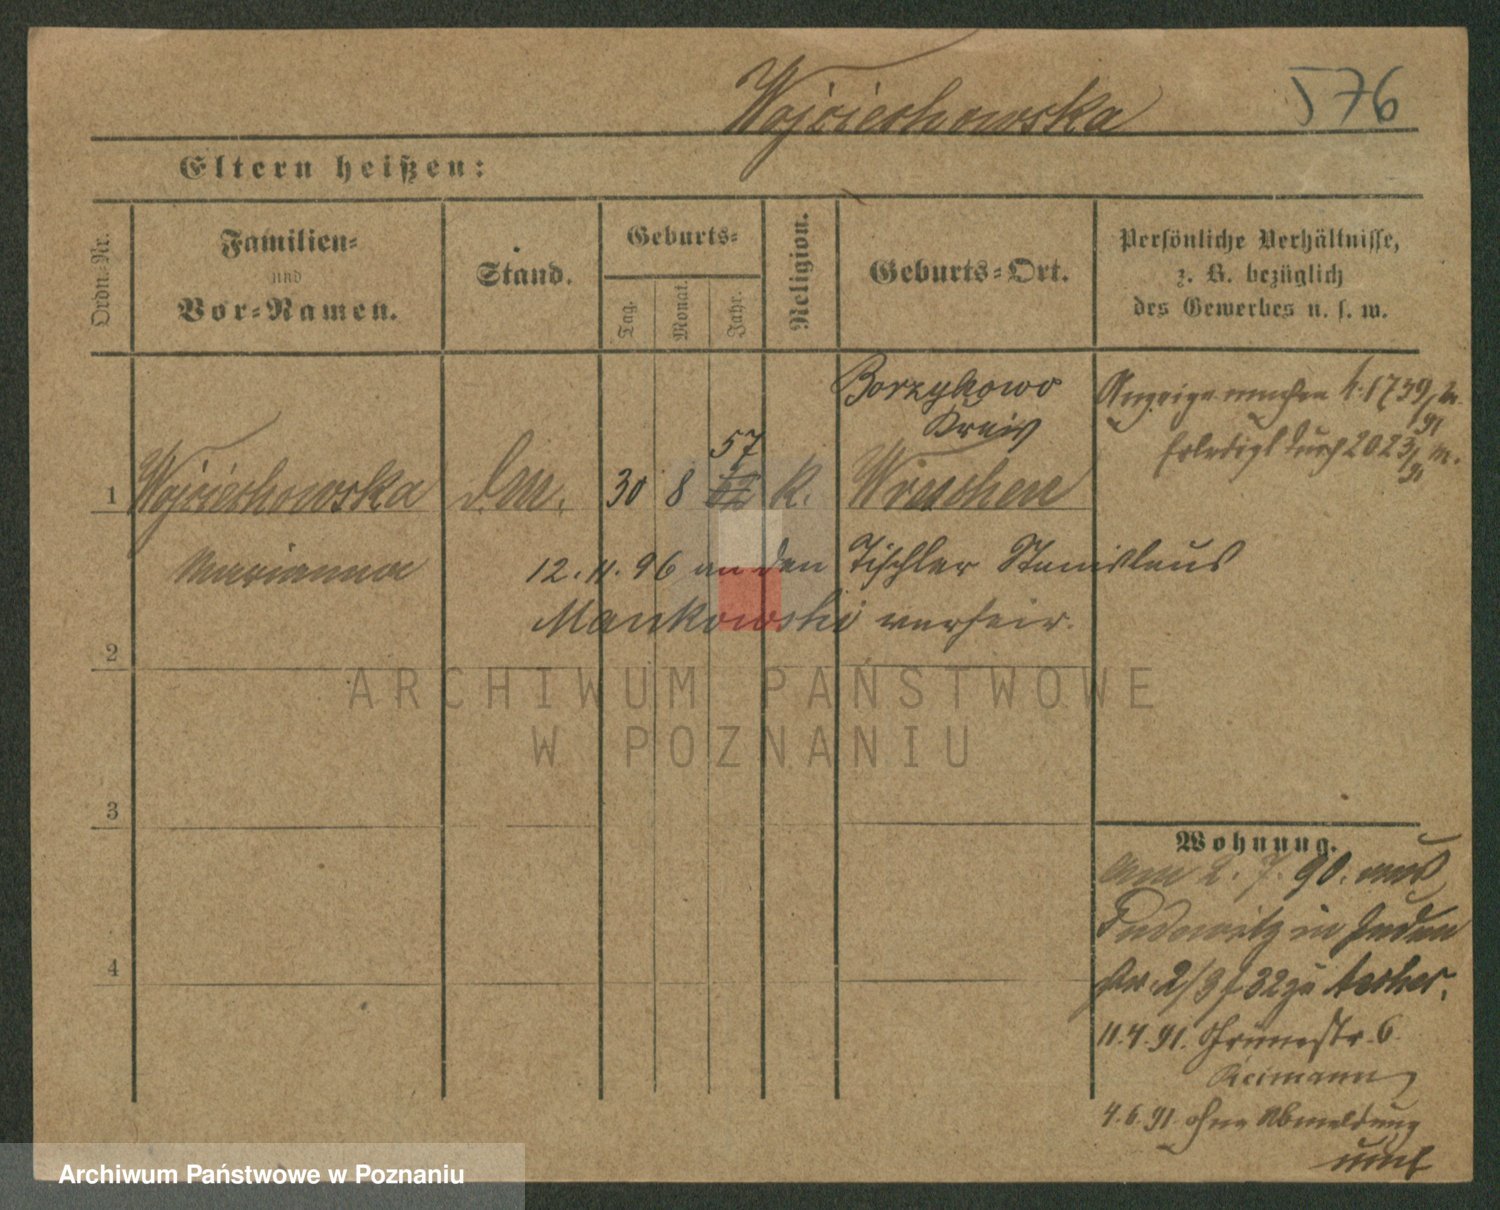 Wojciechowska 576
Eltern heißen:
Ordn-Nr.
Familien-
und
Vor-Namen.
Stand.
Geburts-
Tag.
Monat.
Jahr.
Religion.
Geburts-Ort.
Persönliche Verhältnisse,
z. B. bezüglich
des Gewerbes u. s. w.
Borzykowo
Kreis
57
1 Wojciechowska 30 8 K. Wreschen
Marianna
12. 11. 96 an den Tischler Stanislaus
Mankowski verheir.
Anzeige machen 1739/
91
Erledigt durch 2023/
91
2
3
4
Wohnung.
Am 2. 7. 90. aus
Pudewitz in
2/3 32 zu Ascher.
11.4.91. Grünestr. 6
Reimann
4.6.91 ohne Abmeldung
ARCHIWUM PAŃSTWOWE
W POZNANIU
Archiwum Państwowe w Poznaniu